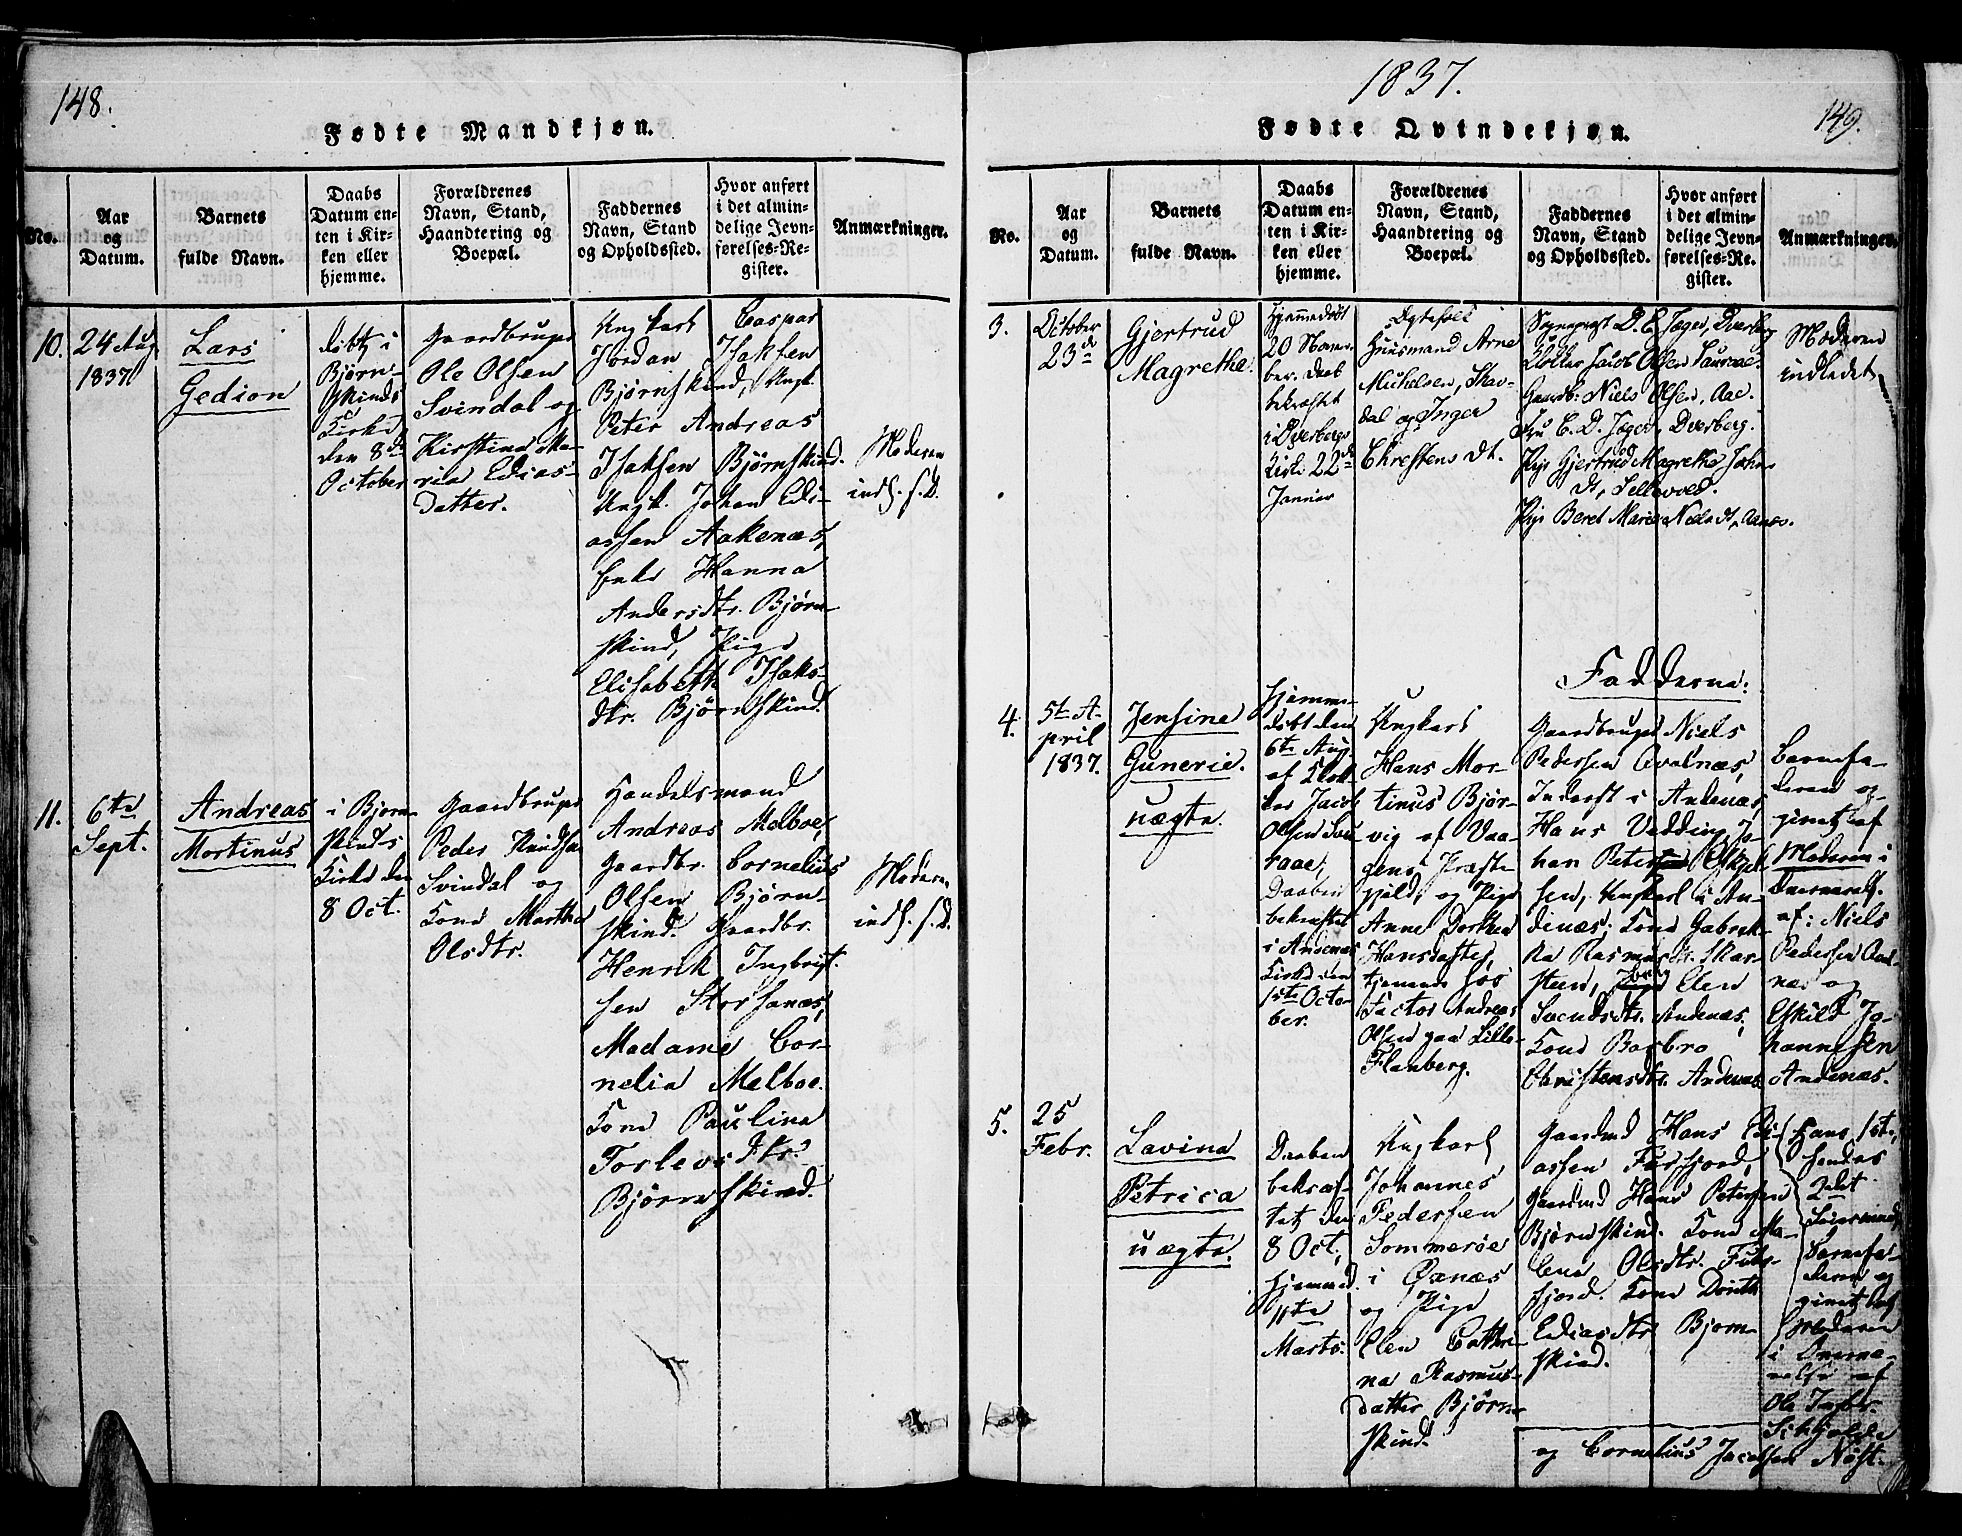 148.
Fødte Mandkjøn.
No.
Aar
og
Datum.
Barnets
fulde Navn.
Daabs
Datum en-
ten i Kir-
ken eller
hjemme.
Forældrenes
Navn, Stand,
Haandtering og
Boepæl.
Faddernes
Navn, Stand
og Opholdssted.
Hvor anført
i det almin-
delige Jevn-
førelses-Re-
gister.
Anmærkninger.
10.
24 Aug
1837
Lars
Gedion
døbt i
Bjørn-
skinds
Kirke
den 8de
October
Gaardbruger
Ole Olsen
Svindal og
Kirstine Ma-
ria Edias-
datter.
Ungkarl Caspar
Jordan Isaksen
Bjørnskind, Ungk.
Peter Andreas
Isaksen Bjørnskind.
Ungk. Johan Edi-
assen Aakenæs,
Enke Hanna
Andersdtr. Bjørn-
skind, Pige
Elisabeth Isaks-
dtr. Bjørnskind.
Moderen
indl. s. D.
11.
6te
Sept.
Andreas
Mortinus
i Bjørn-
skinds
Kirke den
8 Oct.
Gaardbruger
Peder Knudsen
Svindal og
Kone Martha
Olsdtr.
Handelsmand
Andreas Melboe,
Gaardbr. Cornelius
Olsen Bjørn-
skind. Gaardbr.
Henrik Ingbrigt-
sen Storsanæs,
Madame Cor-
nelia Melboe.
Kone Paulina
Torlevsdtr.
Bjørnskind.
Moderen
indl. s. D.
1837.
149.
Fødte Qvindekjøn.
No.
Aar
og
Datum.
Barnets
fulde Navn.
Daabs
Datum en-
ten i Kir-
ken eller
hjemme.
Forældrenes
Navn, Stand,
Haandtering og
Boepæl.
Faddernes
Navn, Stand
og Opholdssted.
Hvor anført
i det almin-
delige Jevn-
førelses-Re-
gister.
Anmærkninger.
3.
October
23de
Gjertrud
Magrethe.
Hjemmedøbt
20 Novem-
ber. Daab
bekræftet
i Dverbergs
Kirke 22de
Januar
Ægtefolk
Huusmand Arne
Michelsen, Skav-
dal og Inger
Christens dt.
Sognepræst D. E. Jæger, Dverberg
Klokker Jacob Olsen Saurae.
Gaardb: Niels Olsen, Aae.
Fru C. D. Jæger, Dverberg.
Pige Gjertrud Magrethe Johns
dt, Sellevold.
Pige Beret Maria Niels dt, Aanes.
Moderen
indledet
Fadderne:
4.
5te A-
pril
1837.
Jensine
Gunerie.
uægte.
Hjemme-
døbt den
6te Aug.
af Klok-
ker Jacob
Olsen Sau-
raae,
Daaben
bekræftet
i Andenæs
Kirke den
1ste Octo-
ber.
Ungkarl
Hans Mor-
tinus Bjør-
vig af Vaa-
gens Præste-
gjæld, og Pige
Anne Dorthea
Hansdatter,
tjenende hos
Factor Andreas
Olsen paa Lille-
Flanberg.
Gaardbruger Niels
Pedersen Qvalnæs,
Inderst i Andenæs,
Hans Vedding, Jo-
han Peter Eskel-
sen, Ungkarl i An-
denæs, Kone Gabrik-
ka Rasmusdtr. Skar-
steen, Elen
Svendsdtr. Andenæs,
Kone Barbro
Christensdtr. Andenæs
Barnefa-
deren og-
givet af
Moderen i
Overværelse
af: Niels
Pedersen Qval-
næs og
Eskild Jo-
hannesen
Andenæs.
5.
25
Febr.
Lavina
Petrica
uægte.
Daaben
bekræf-
tet den
8 Oct,
hjemmed.
11te
Marts.
Ungkarl
Johannes
Pedersen
Sommerøe
i Øxnæs
og Pige
Elen Cathri-
na Rasmus-
datter Bjørn-
skind.
Gaardmd Hans Edi-
assen Forfjord,
Gaardmd Hans Petersen
Bjørnskind. Kone Ma-
lena Olsdtr. For-
fjord. Kone Dorith
Ediasdtr Bjørn-
skind.
Hans 1ste,
hendes
2det
Leiermaal
Barnefa-
deren og
givet ved
Moderen
i Overvæ-
relse af
Ole Ingbr.
Schjolde
og Cornelius Jacobsen Nøst-